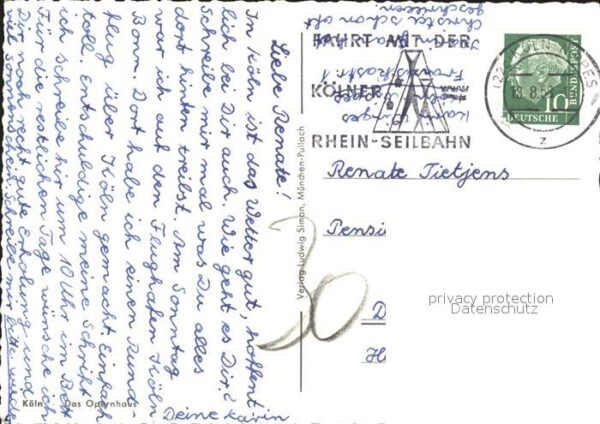 Liebe Renate!
In Köln ist das Wetter gut, hoffent-
lich bei Dir auch. Wie geht es Dir?
Schreibe mir mal was Du alles
dort hinten treibst. Am Sonntag
war ich auf den Flughafen Köln
Bonn. Dort habe ich einen Rund-
flug über Köln gemacht. Einfach
toll. Entschuldige meine Schrift
ich schreibe hier um 10 Uhr im Bett
Für die restlichen Tage wünsche ich
Dir noch recht gute Erholung und
Deine Karin
Köln Das Opernhaus
Verlag Ludwig Simon, München-Pullach
Christel schon oft
geschrieben.
Karin
FAHRT MIT DER
KÖLNER
RHEIN-SEILBAHN
KÖLN
18.8.
z
10
DEUTSCHE
BUNDESPOST
Renate Tietjens
Pensi
D
H
30
privacy protection
Datenschutz